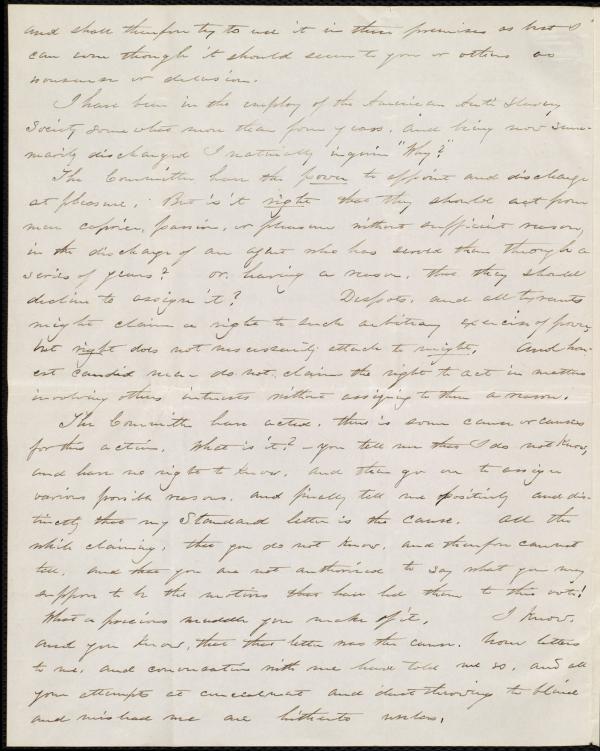 and shall therefore try to use it in these premises as best I
can even though it should seem to you or others as
nonsense or delusion.
I have been in the employ of the American Anti Slavery
Society somewhat more than four years. And being now sum-
marily discharged I naturally inquire "Why?"
The Committee have the power to appoint and discharge
at pleasure. But is it right that they should act from
mere caprice, passion, or pleasure without sufficient reason,
in the discharge of an agent who has served them through a
series of years? or, having a reason, that they should
decline to assign it? Despots, and all tyrants
might claim a right to such arbitrary exercise of power,
but right does not necessarily attach to might. And hon-
est candid men do not claim the right to act in matters
involving others interests without assigning to them a reason.
The Committee have acted. there is some cause or causes
for this action. What is it? - you tell me that I do not know,
and have no right to know, and then go on to assign
various possible reasons, and finally tell me positively and dis-
tinctly that my Standard letter is the cause. All the
while claiming, that you do not know, and therefore cannot
tell, and that you are not authorized to say what you may
suppose to be the motives that have led them to this vote!
What a precious muddle you make of it. I know,
and you know, that that letter was the cause. Your letters
to me, and conversation with me have told me so, and all
your attempts at concealment and dust throwing to blind
and mislead me are hitherto useless.